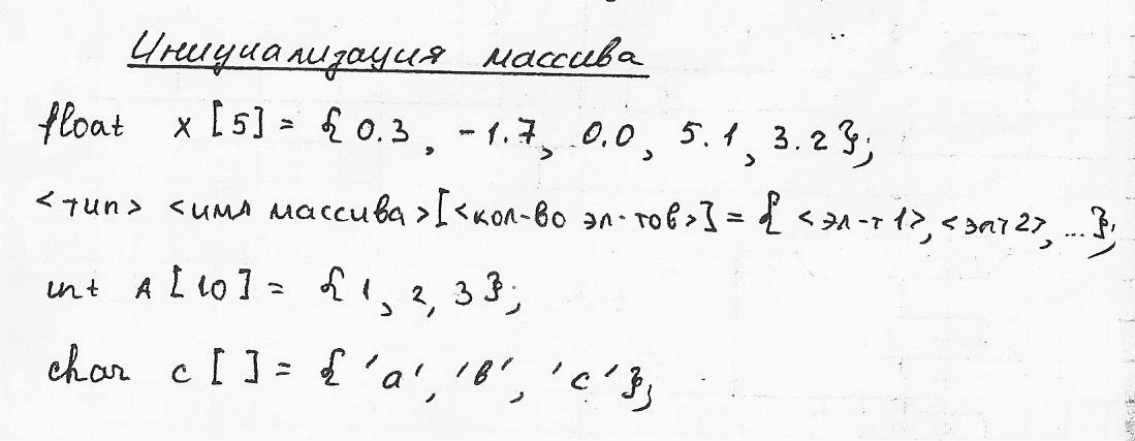 Инициализация массива
float x [5] = { 0.3, -1.7, 0.0, 5.1, 3.2 };
<тип> <имя массива>[<кол-во эл-тов>] = { <эл-т 1>, <элт 2>, ...};
int A [10] = { 1, 2, 3 };
char c [ ] = { 'a', 'в', 'c' };